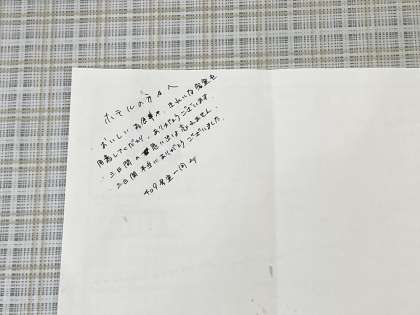 ホテルの方々へ
おいしいお食事や、きれいな客室を
用意してくださり、ありがとうございます。
・三日間の思い出は忘れません。
・三日間本当にありがとうございました。
409号室一同より